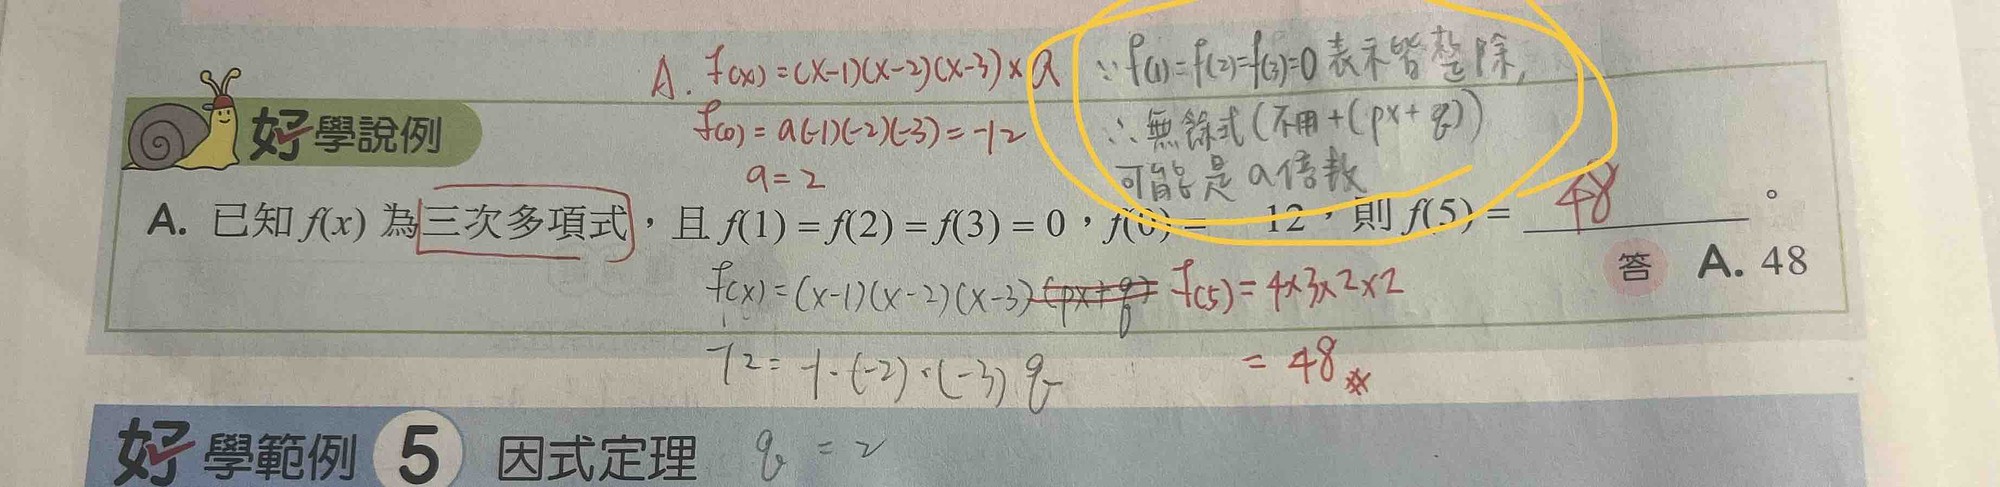 A. f(x) = (x-1)(x-2)(x-3) × a
f(0) = a(-1)(-2)(-3) = -12
a = 2
∵ f(1) = f(2) = f(3) = 0 表示皆整除,
∴ 無餘式 (不用 + (px + q))
可能是 a 倍數
好學說例
A. 已知 f(x) 為三次多項式，且 f(1) = f(2) = f(3) = 0，f(0) = − 12，則 f(5) = 48 。
答 A. 48
f(x) = (x-1)(x-2)(x-3) (px+q)
f(5) = 4×3×2×2
= 48
-12 = -1·(-2)·(-3) q
q = 2
好學範例 5 因式定理